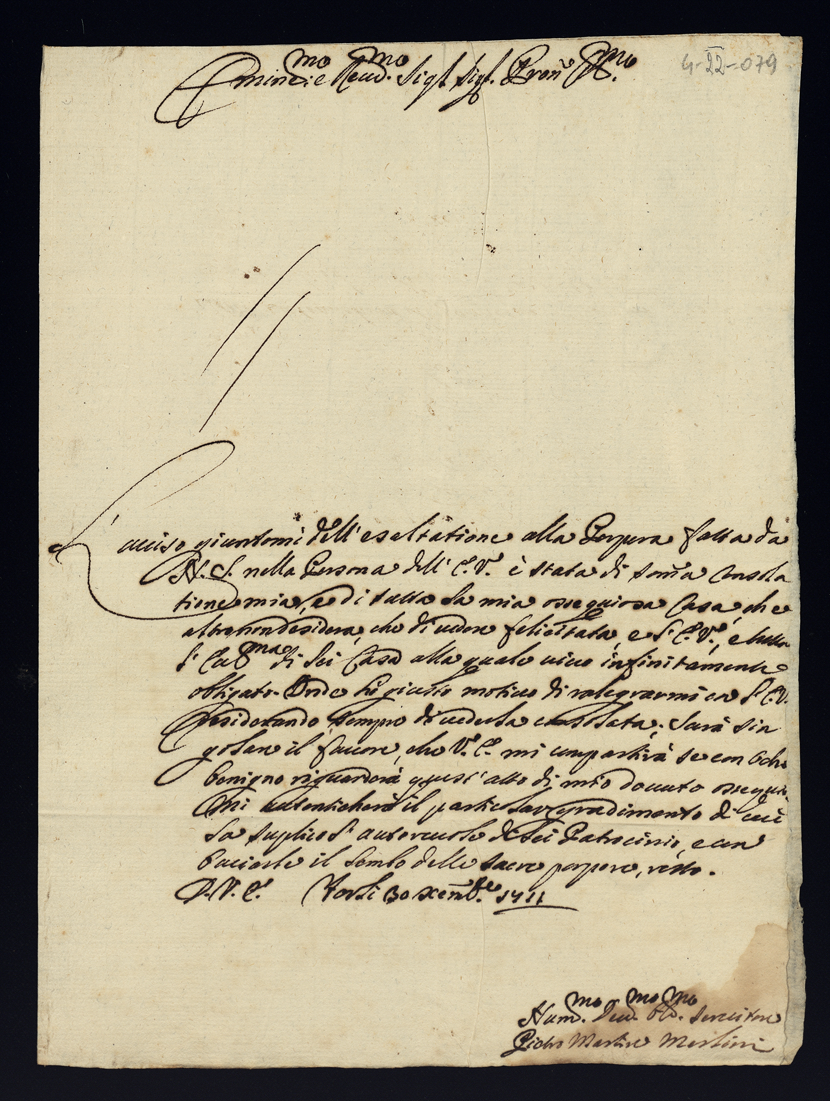 4-II-079
Emin.mo e Reud.mo Sigr. Sigr. Pron. P.mo
L'auiso giuntomi dell'esaltatione alla Porpora fatta da
N. S. nella Persona dell'E. V. è stata di soma Consola
tione mia, e di tutta la mia ossequiosa Casa, che
altro non desidera, che di ueder felicitata e l'E. V., e tutta
l'Ecc.ma di Lei Casa alla quale uiuo infinitamente
obligato. Onde hò giusto motiuo di ralegrarmi con l'E. V.
desiderando sempre di uederla consolata. Sarà sin
golare il fauore, che V. E. mi compartirà se con Ochi
benigno riguarderà quest'atto di mio douuto ossequi
Mi autenticherà il particolar gradimento di cui
la suplico l'autoreuole di Lei Patrocinio, e con
baciarle il lembo delle sacre porpore, resto.
D. V. E. Forlì 30 xembre 1711
Hum.mo Deu.mo Obl.mo Seruitore
Pietro Martire Merlini